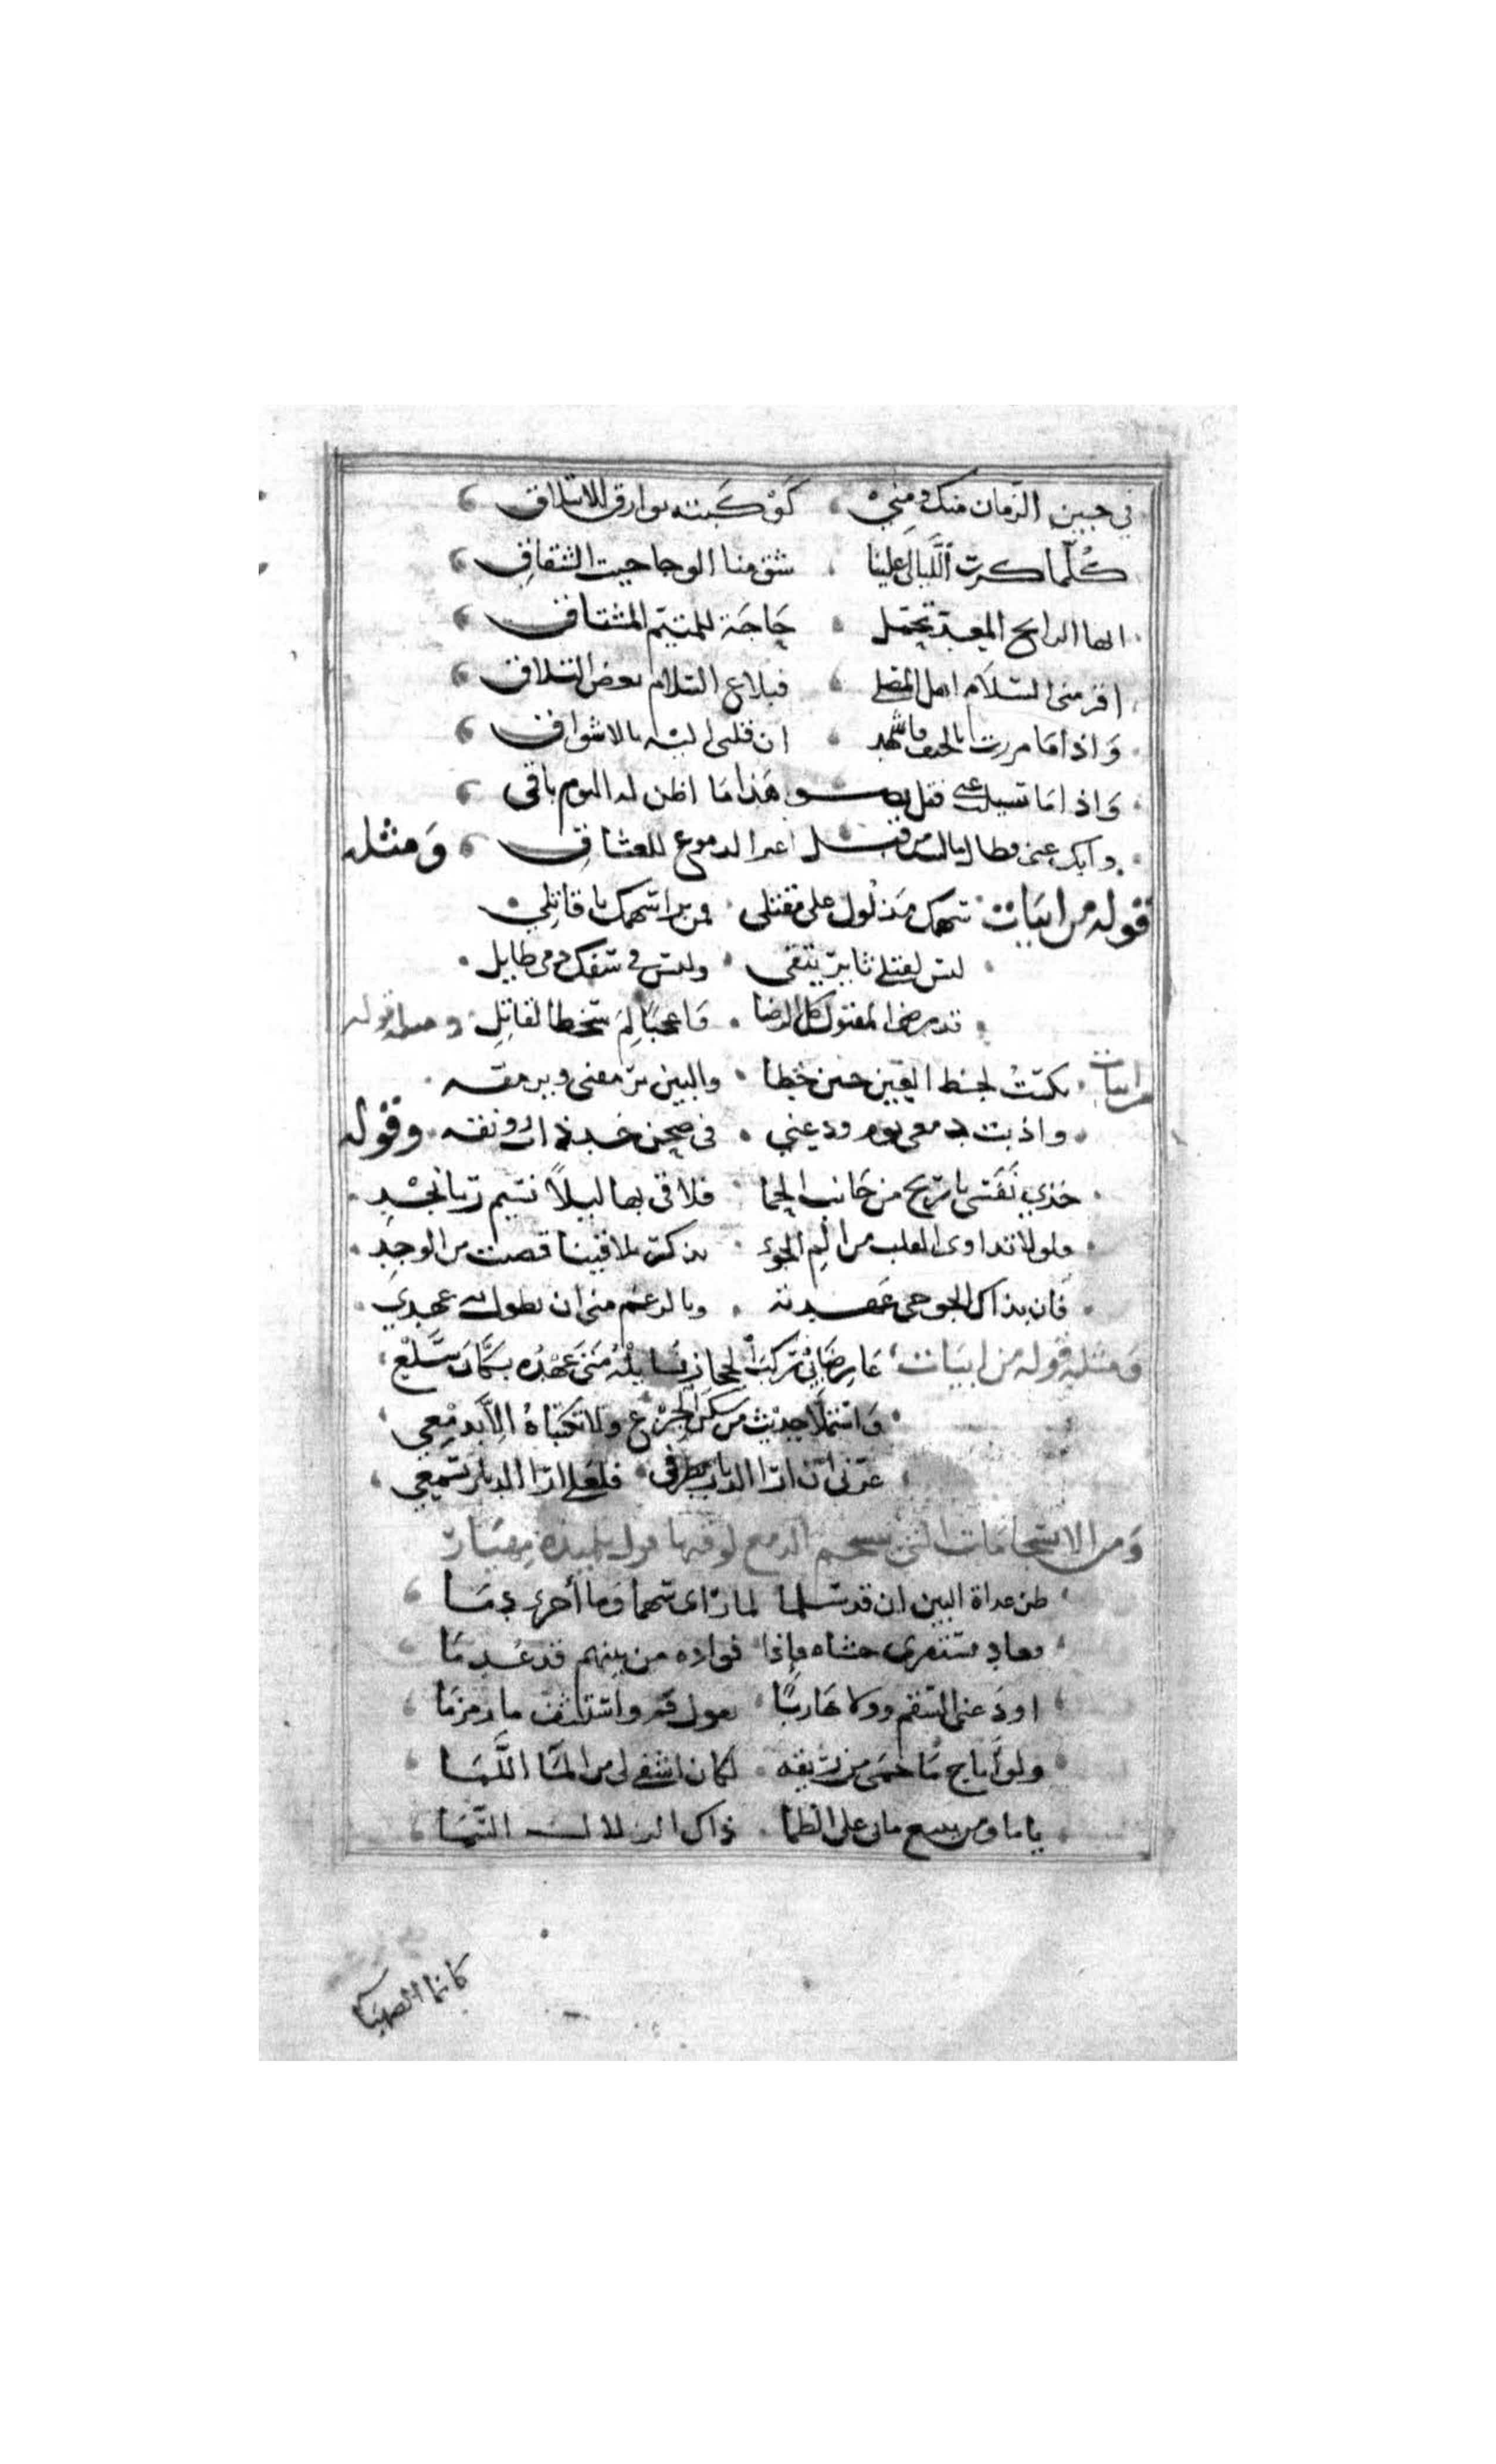 في جبين الزمان منك ومني كوكبته بوارق الائتلاق
كلما كرت الليالي علينا شق منا الوجا جيب الشقاق
ايها الرايح المغذ تحمل حاجة للمتيم المشتاق
اقر مني السلام اهل المصلى فبلاغ السلام بعض التلاق
واذا ما مررت بالخيف فاشهد ان قلبي اليه بالاشواق
واذا ما تسيل عني فقل نضو هذا ما اظن له اليوم باقي
وابك عني فطالما كنت من قبل اعير الدموع للعشاق ومثله
قوله من ابيات سهمك مدلول على مقتلي فمن برا سهمك يا قاتلي
ليس لقتلي ثاير يتقى وليس في سفك دمي طايل
قد رضي المقتول كل الرضا واعجبا لم سخط القاتل ومنه قوله
من ابيات بكيت لحظ العين حين خطا والبين يرمقني ويرمقه
واذبت دمعي يوم ودعني في صحن خد ذاب رونقه وقوله
خذي نفسي يا ريح من جانب الحما فلاقي بها ليلا نسيم ربا نجد
ولولا تداوي القلب من الم الجوى بذكر تلاقينا قضيت من الوجد
فان بذاك الجو حي عهدته وبالرغم مني ان يطول به عهدي
ومثله قوله من ابيات عارضا بي ركب الحجاز نسايله متى عهده بسكان سلع
واستملا حديث من سكن الجزع ولا تكتباه الا بدمعي
عز ني ان ارا الديار بطرفي فلعلي ارا الديار بسمعي
ومن الاستجامات التي ينسجم الدمع لوقتها قول تلميذه مهيار
ظن غداة البين ان قد سلما لما راى سهما وما أجرى دما
وعاد يستقري حشاه فاذا فواده من بينهم قد عدما
اودعني السقم وولا هاربا يقول قم واستشف ما زمزما
ولو أباح ما حمى من ريقه لكان اشفى لي من الما اللما
يا ما ومن يبيع ماء على الظما ذاك الزلال الشبما
كانما الصهبا